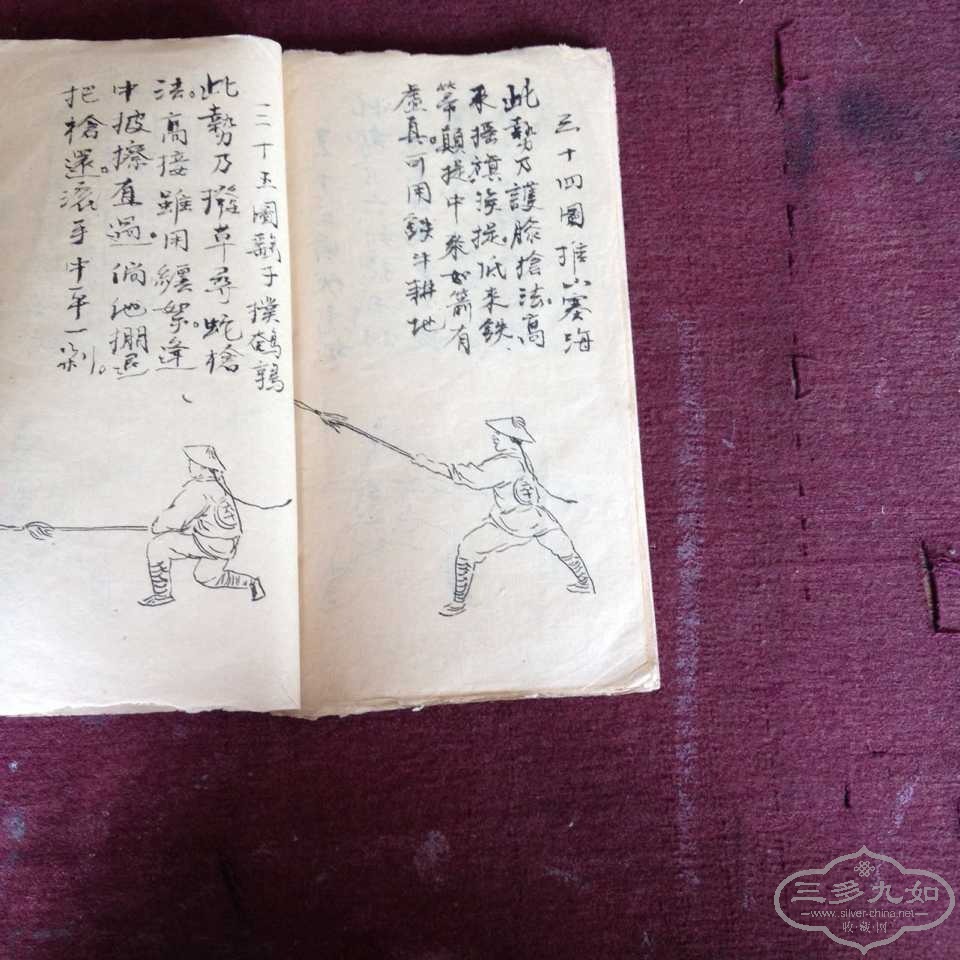 三十四圖推山塞海
此勢乃護膝搶法。高
來搖旗挨捉。低来鉄
帚顛提中來如箭有
虛真可用鉄牛耕地
二十五圖鷂子撲鵪鶉
此勢乃撥草尋蛇槍
法。高接雖用纏絮。逢
中披擦直過倘他掤退
把槍還滾手中平一剁。
三多九如
www.silver-china.net
收·藏·图